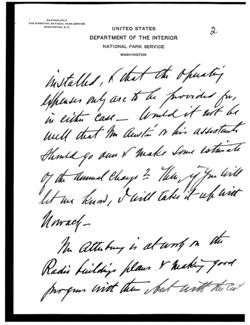 2
UNITED STATES
DEPARTMENT OF THE INTERIOR
NATIONAL PARK SERVICE
WASHINGTON
installed, & that the operating
expenses only are to be provided for,
in either case – Would it not be
well that Mr Austin or his assistants
should go over & make some estimate
of the annual charge? Then, if you will
let me know, I will take it up with
Mr Atterbury is at work on the
Radio building plans & making good
progress with them but with the